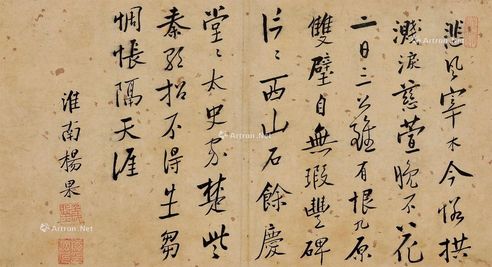 悲風宰木今恰拱
濺淚慈萱晚不花
二日三公雖有恨九原
雙璧自無瑕豐碑
片々西山石餘慶
堂々太史家楚些
秦招不得生芻
惆悵隔天涯
淮南楊果
Artron.Net
Artron.Net
Artron.Net
Artron.Net
Artron.Net